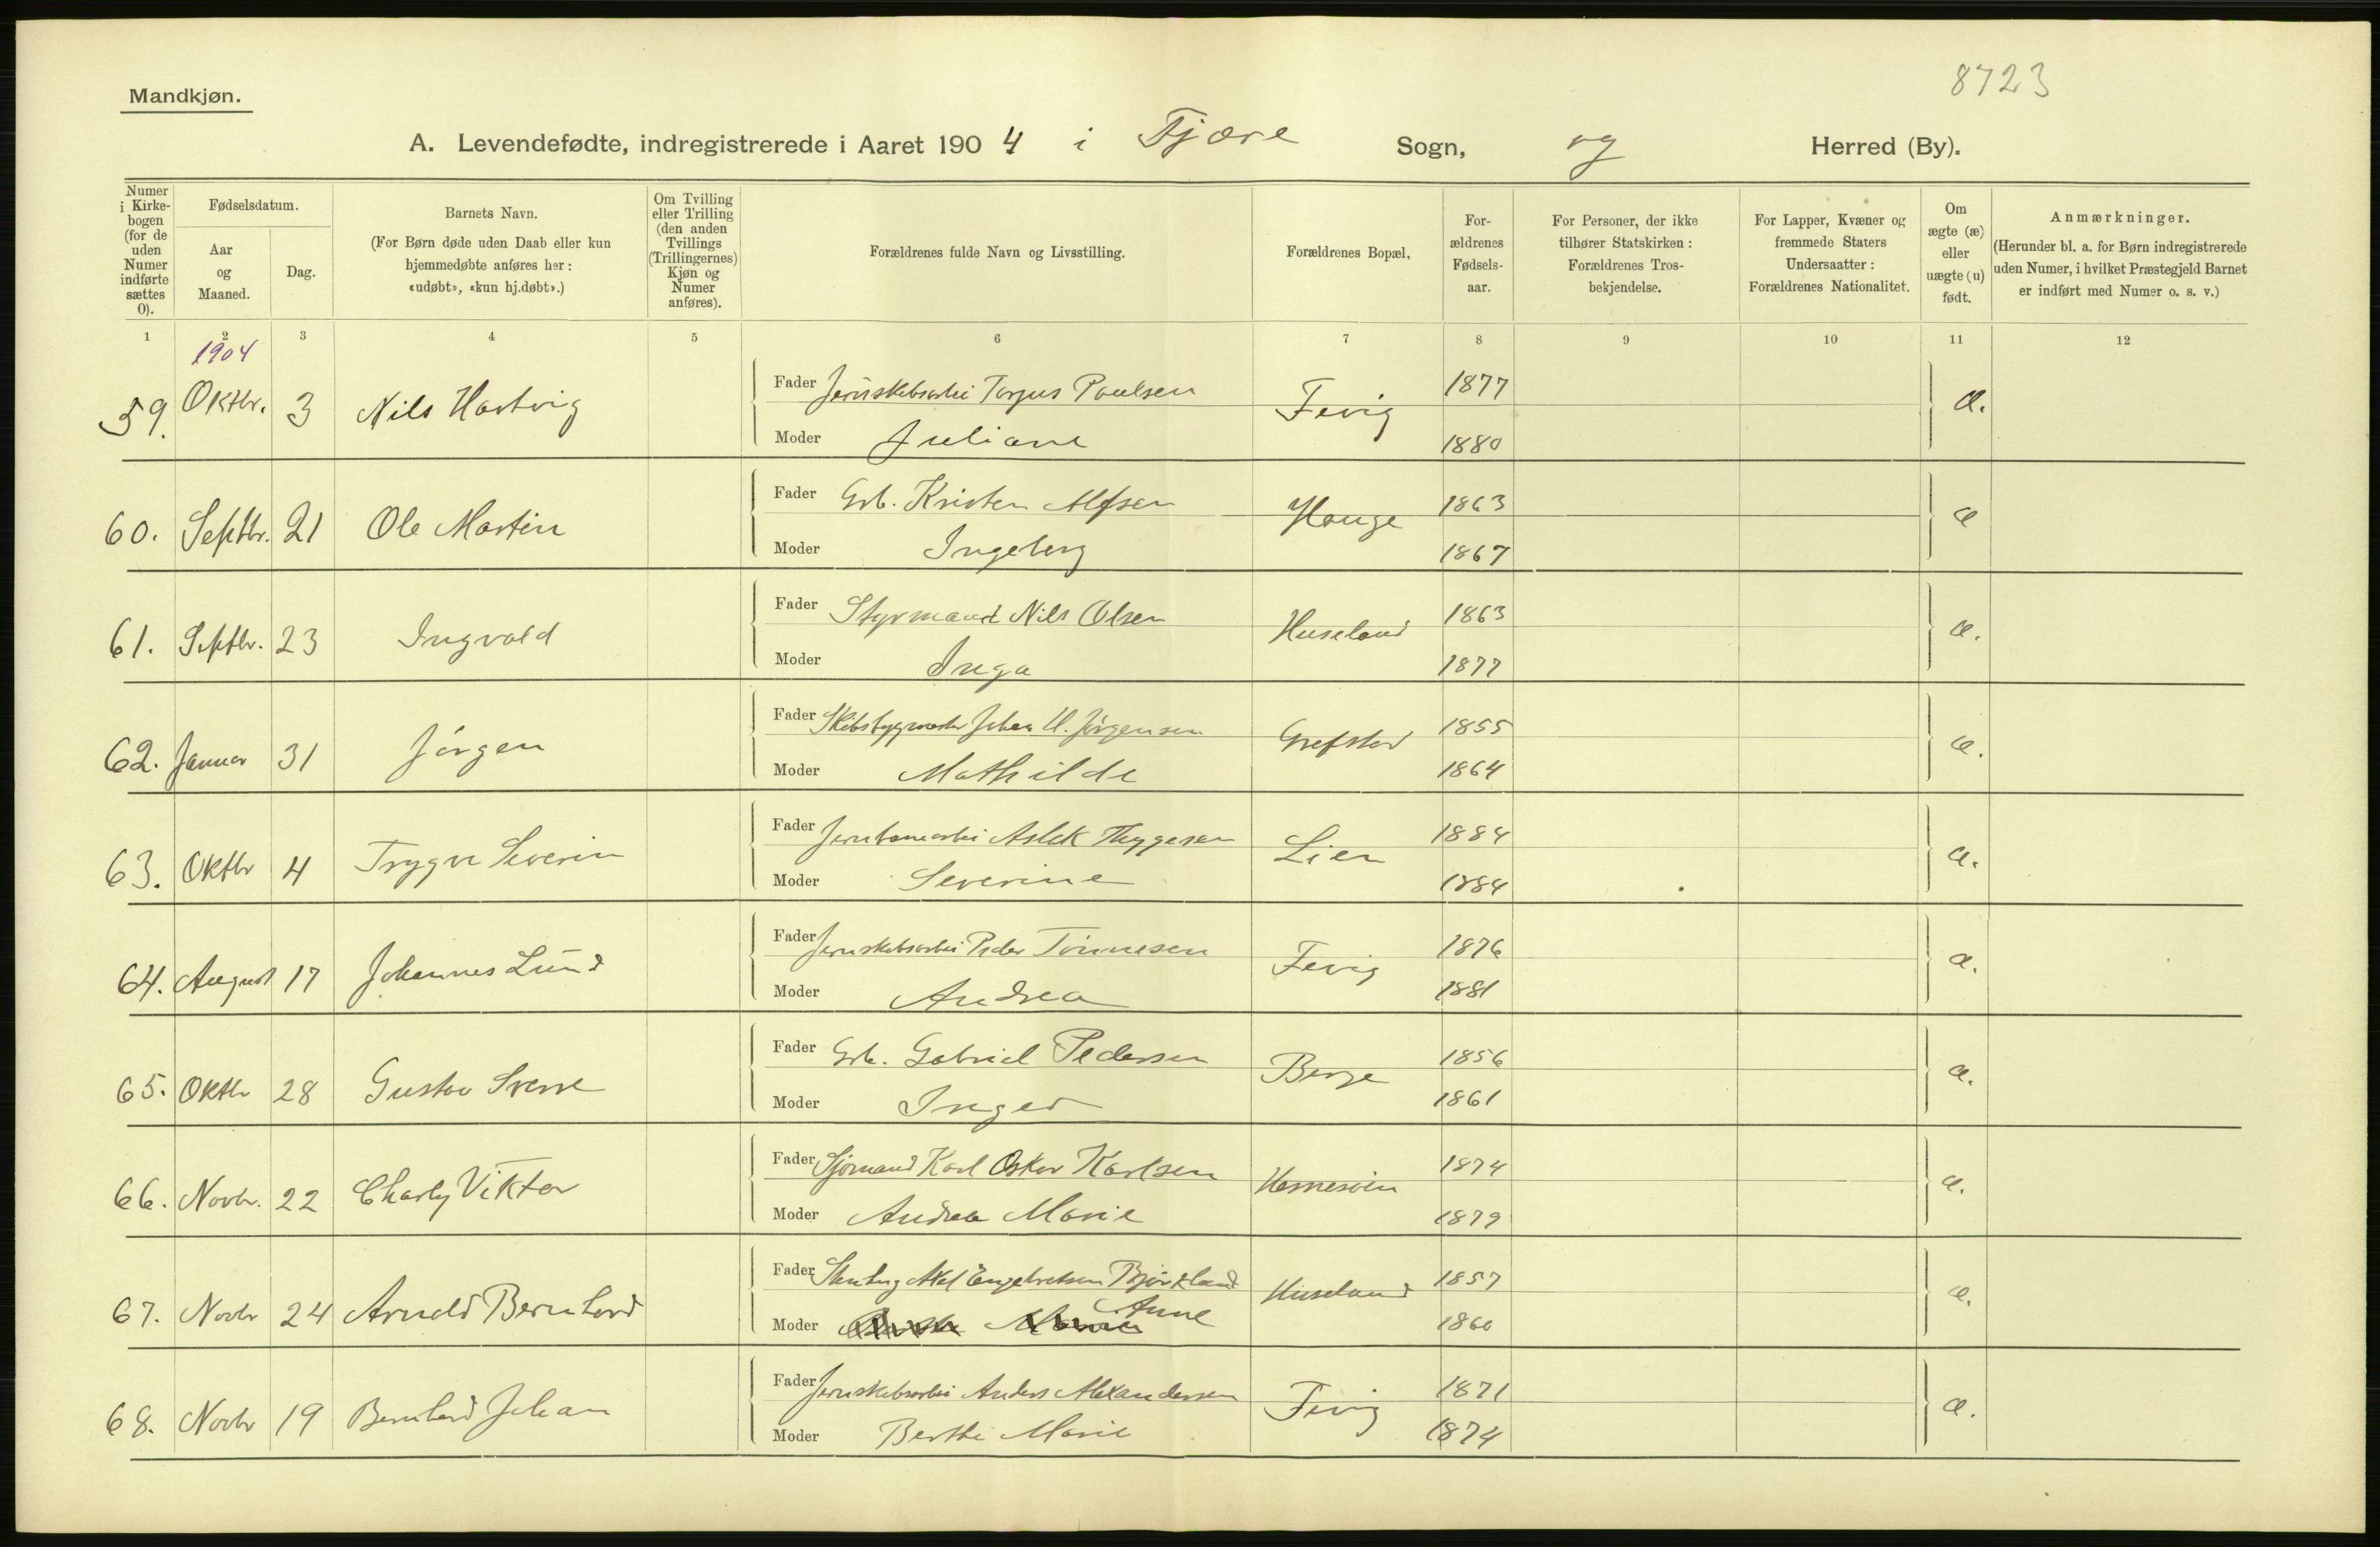 8723
Mandkjøn.
A. Levendefødte, indregistrerede i Aaret 1904 i Fjære Sogn, og Herred (By).
Numer i Kirkebogen (for de uden Numer indførte sættes 0).
Fødselsdatum.
Aar og Maaned.
Dag.
Barnets Navn.
(For Børn døde uden Daab eller kun hjemmedøbte anføres her: «udøbt», «kun hj.døbt».)
Om Tvilling eller Trilling (den anden Tvillings (Trillingernes) Kjøn og Numer anføres).
Forældrenes fulde Navn og Livsstilling.
Forældrenes Bopæl,
Forældrenes Fødselsaar.
For Personer, der ikke tilhører Statskirken: Forældrenes Trosbekjendelse.
For Lapper, Kvæner og fremmede Staters Undersaatter: Forældrenes Nationalitet.
Om ægte (æ) eller uægte (u) født.
Anmærkninger.
(Herunder bl. a. for Børn indregistrerede uden Numer, i hvilket Præstegjeld Barnet er indført med Numer o. s. v.)
1 2 3 4 5 6 7 8 9 10 11 12
1904
59. Oktbr. 3 Nils Hartvig Fader Jernskibsarbei Torjus Paulsen Fevig 1877 æ.
Moder Juliane 1880
60. Septbr. 21 Ole Martin Fader Grb. Kristen Alfsen Hauge 1863 æ
Moder Ingeborg 1867
61. Septbr. 23 Ingvald Fader Styrmand Nils Olsen Huseland 1863 æ.
Moder Inga 1877
62. Januar 31 Jörgen Fader Skibsbygmester Johan U. Jörgensen Grefstad 1855 æ.
Moder Mathilde 1864
63. Oktbr 4 Trygve Severin Fader Jernbanearbei Aslak Thygesen Lien 1884 æ.
Moder Severine 1884
64. August 17 Johannes Lund Fader Jernskibsarbei Peder Tönnesen Fevig 1876 æ.
Moder Andrea 1881
65. Oktbr 28 Gustav Sverre Fader Grb. Gabriel Pedersen Berge 1856 æ.
Moder Inger 1861
66. Novbr. 22 Charly Viktor Fader Sjömand Karl Oskar Karlsen 1874 æ.
Moder Andrea Marie 1879
67. Novbr 24 Arnold Bernhard Fader Axel Engebretsen Björkland Huseland 1857 æ.
Moder Anne 1860
68. Novbr 19 Bernhard Johan Fader Jernskibsarbei Anders Alexandersen Fevig 1871 æ.
Moder Berthe Marie 1874